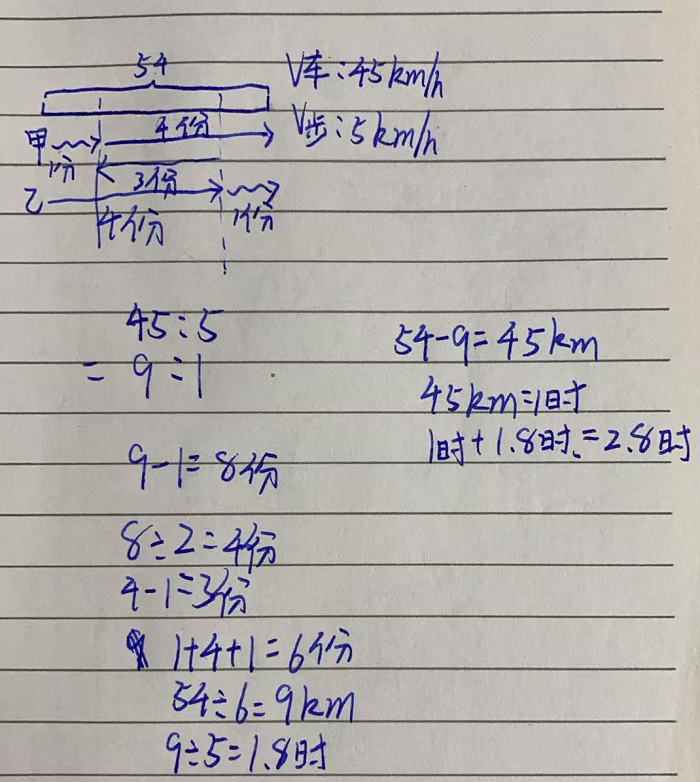 54
V车:45km/h
甲 4份 V步:5km/h
1份
3份
乙 4份 1份
45:5
=9:1
9-1=8份
8÷2=4份
4-1=3份
1+4+1=6份
54÷6=9km
9÷5=1.8时
54-9=45km
45km=1时
1时+1.8时=2.8时